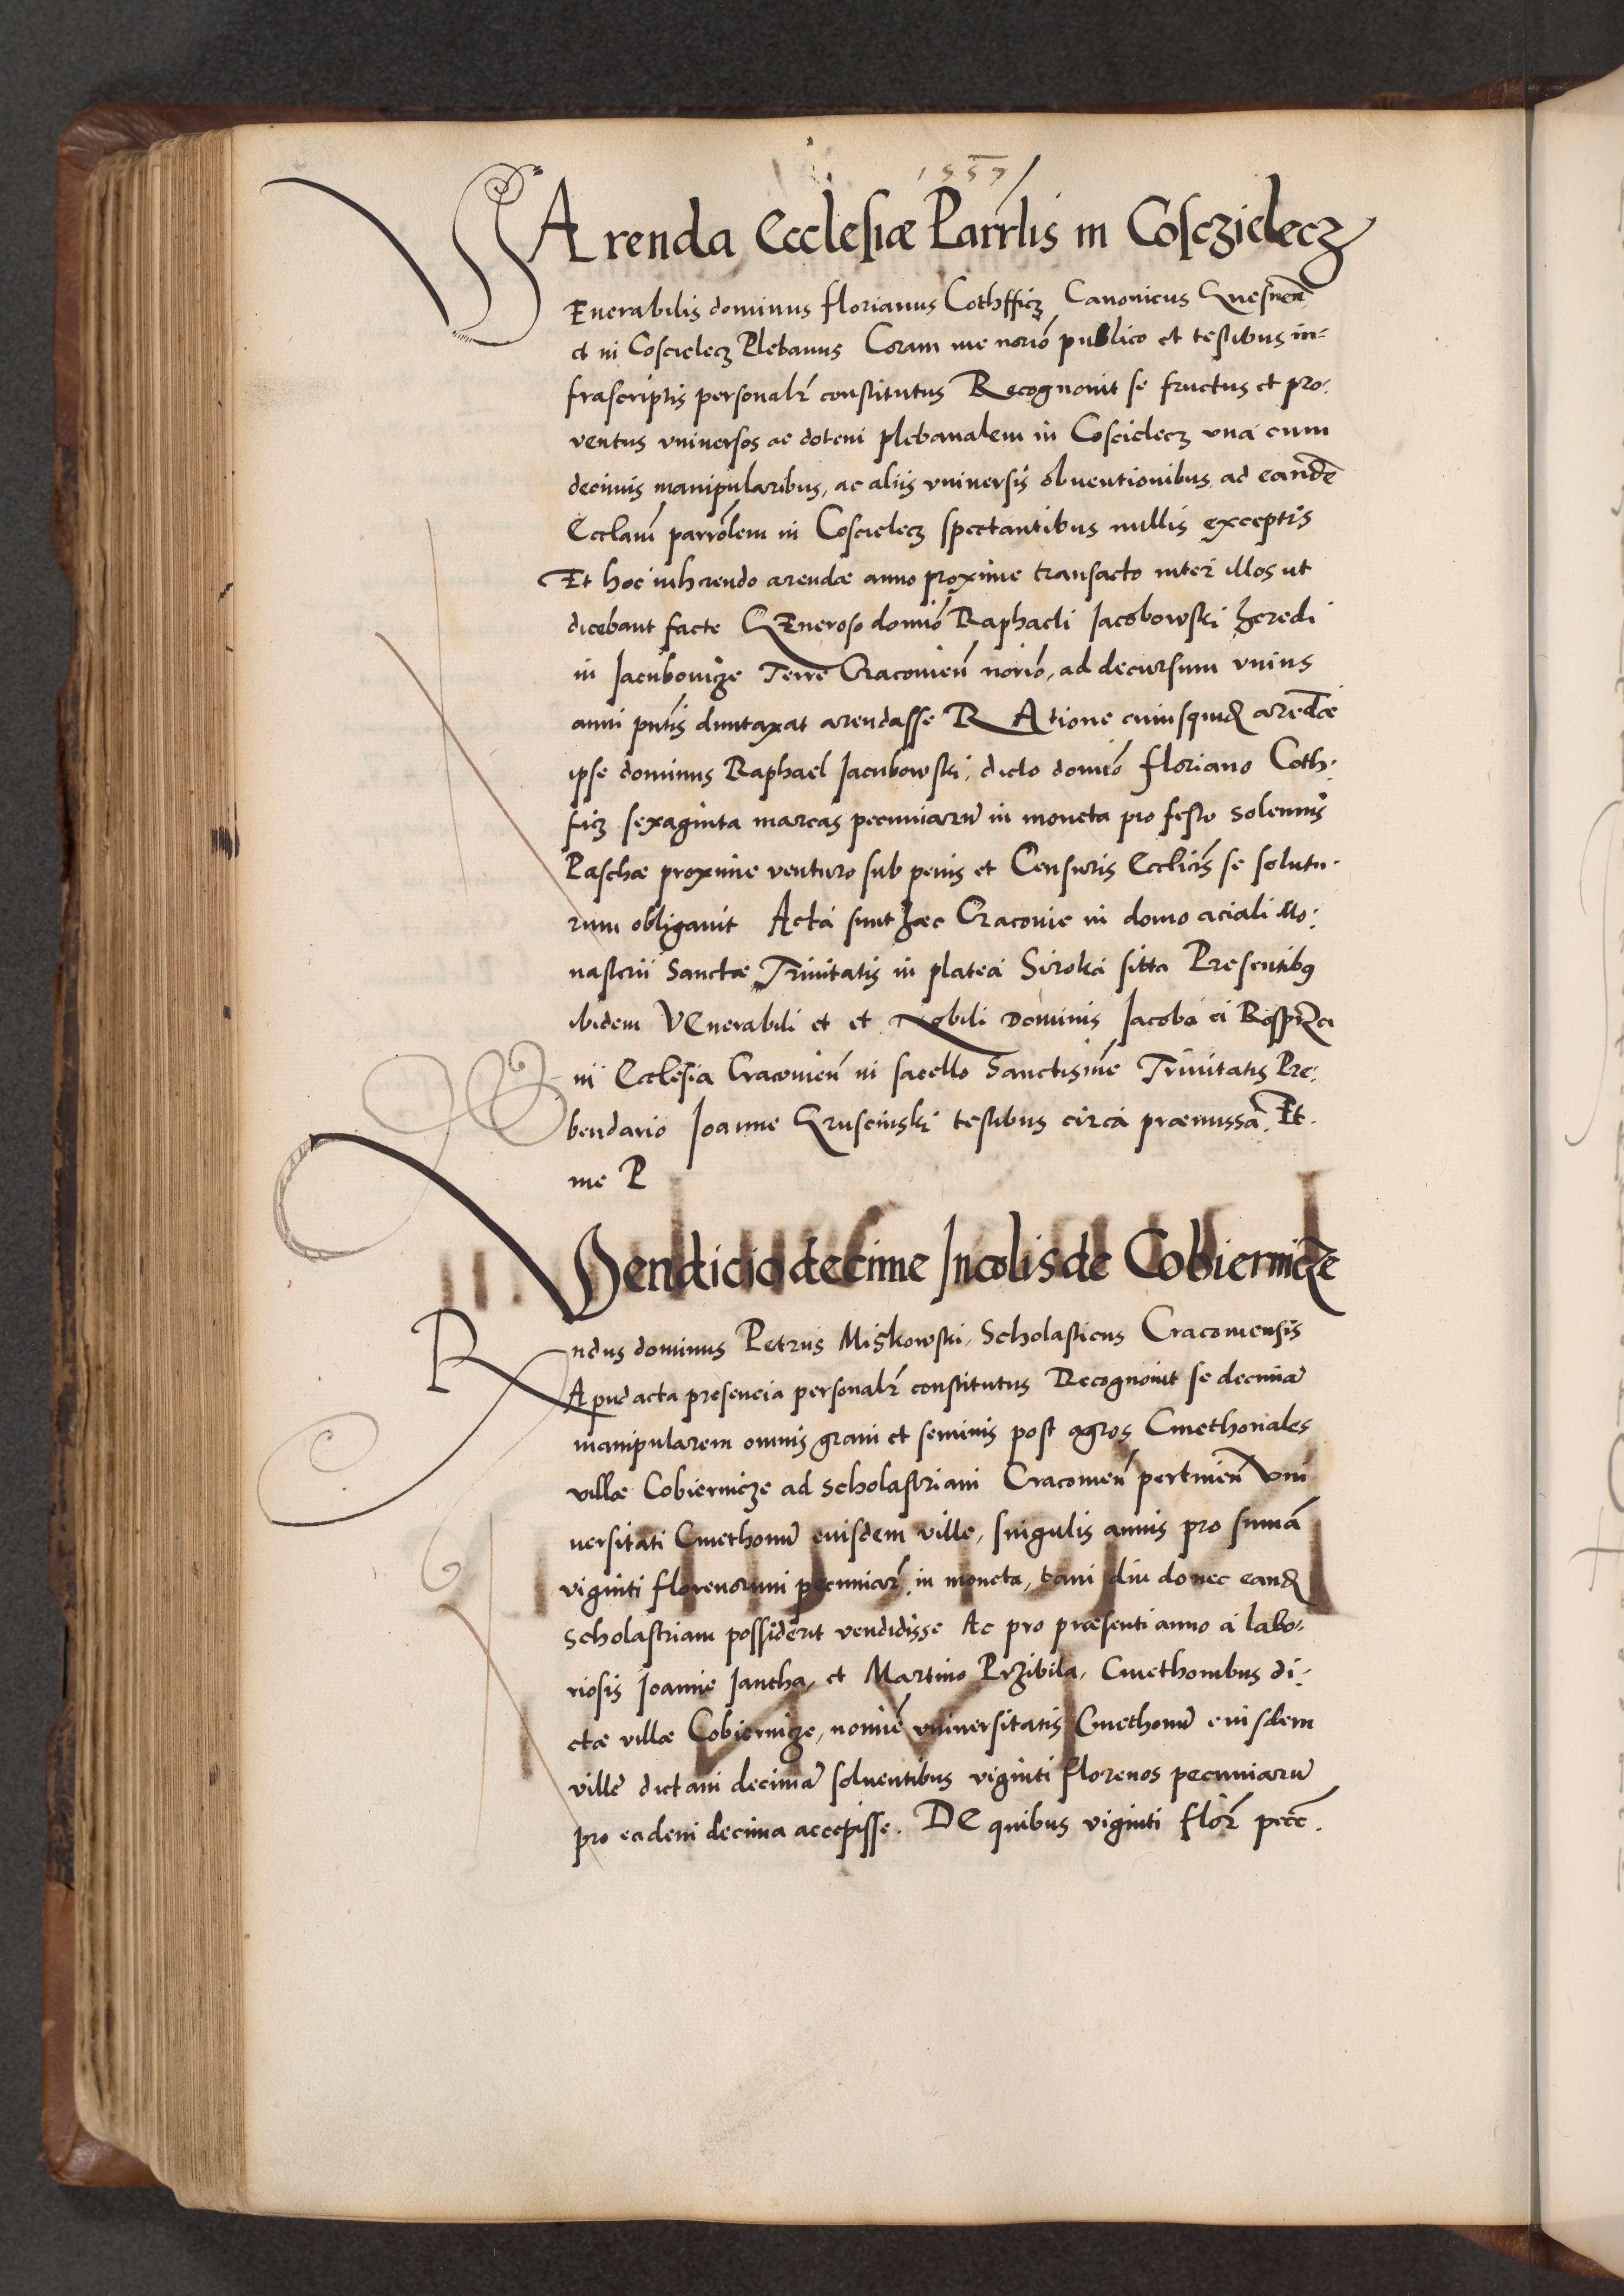 1557
Arenda Ecclesiæ Parrlis in Cosczielecz
VEnerabilis dominus florianus Cothfficz Canonicus Gnesnen̄
et in Coscielecz Plebanus Coram me norio publico et testibus in=
frascriptis personalr constitutus Recognouit se fructus et pro:
ventus vniuersos ac dotem plebanalem in Coscielecz vna cum
decimis manipularibus, ac aliis vniuersis obuentionibus ad eandē
Ecclam parrolem in Coscielecz spectantibus nullis exceptis
Et hoc inhærendo arendæ anno proxime transacto inter illos ut
dicebant facte GEneroso domio Raphaeli Jacobowski heredi
in Jacubouicze Terre Cracouien̄ norio, ad decursum vnius
anni pntis duntaxat arendasse RAtione cuiusquid arēdæ
ipse dominus Raphael Jacubowski, dicto domio floriano Coth:
ficz sexaginta marcas pecuniarū in moneta pro festo solennis
Paschæ proxime venturo sub penis et Censuris Ecclicis se solutu:
rum obligauit Acta sunt hæc Cracouie in domo aciali Mo:
nasterii Sanctæ Trinitatis in platea Siroka sitta Presentibꝫ
ibidem VEnerabili et et Nobili Dominis Jacobo
in Ecclesia Cracouien̄ in sacello Sanctisime Trinitatis Pre:
bendario Joanne Gruscinski testibus circa præmissa. Et
me P
Vendicio decime Incolis de Cobiernicze
Rndus dominus Petrus Miskowski, Scholasticus Cracouiensis
Apud acta presencia personalr constitutus Recognouit se decimā
manipularem omnis grani et seminis post agros Cmethonales
villæ Cobiernicze ad scholastriam Cracouien̄ pertinen̄ Vni
uersitati Cmethonū eiusdem ville, singulis annis pro sumā
viginti florenorum pecuniar in moneta, tam diu donec eand
scholastriam possiderit vendidisse Ac pro præsenti anno a labo:
riosis Joanne Jancha, et Martino Przibila, Cmethonibus di:
ctæ villæ Cobiernicze, nomiē vniuersitatis Cmethonū eiusdem
ville dictam decimā soluentibus viginti florenos pecuniarū
pro eadem decima accepisse. DE quibus viginti flor pecc.